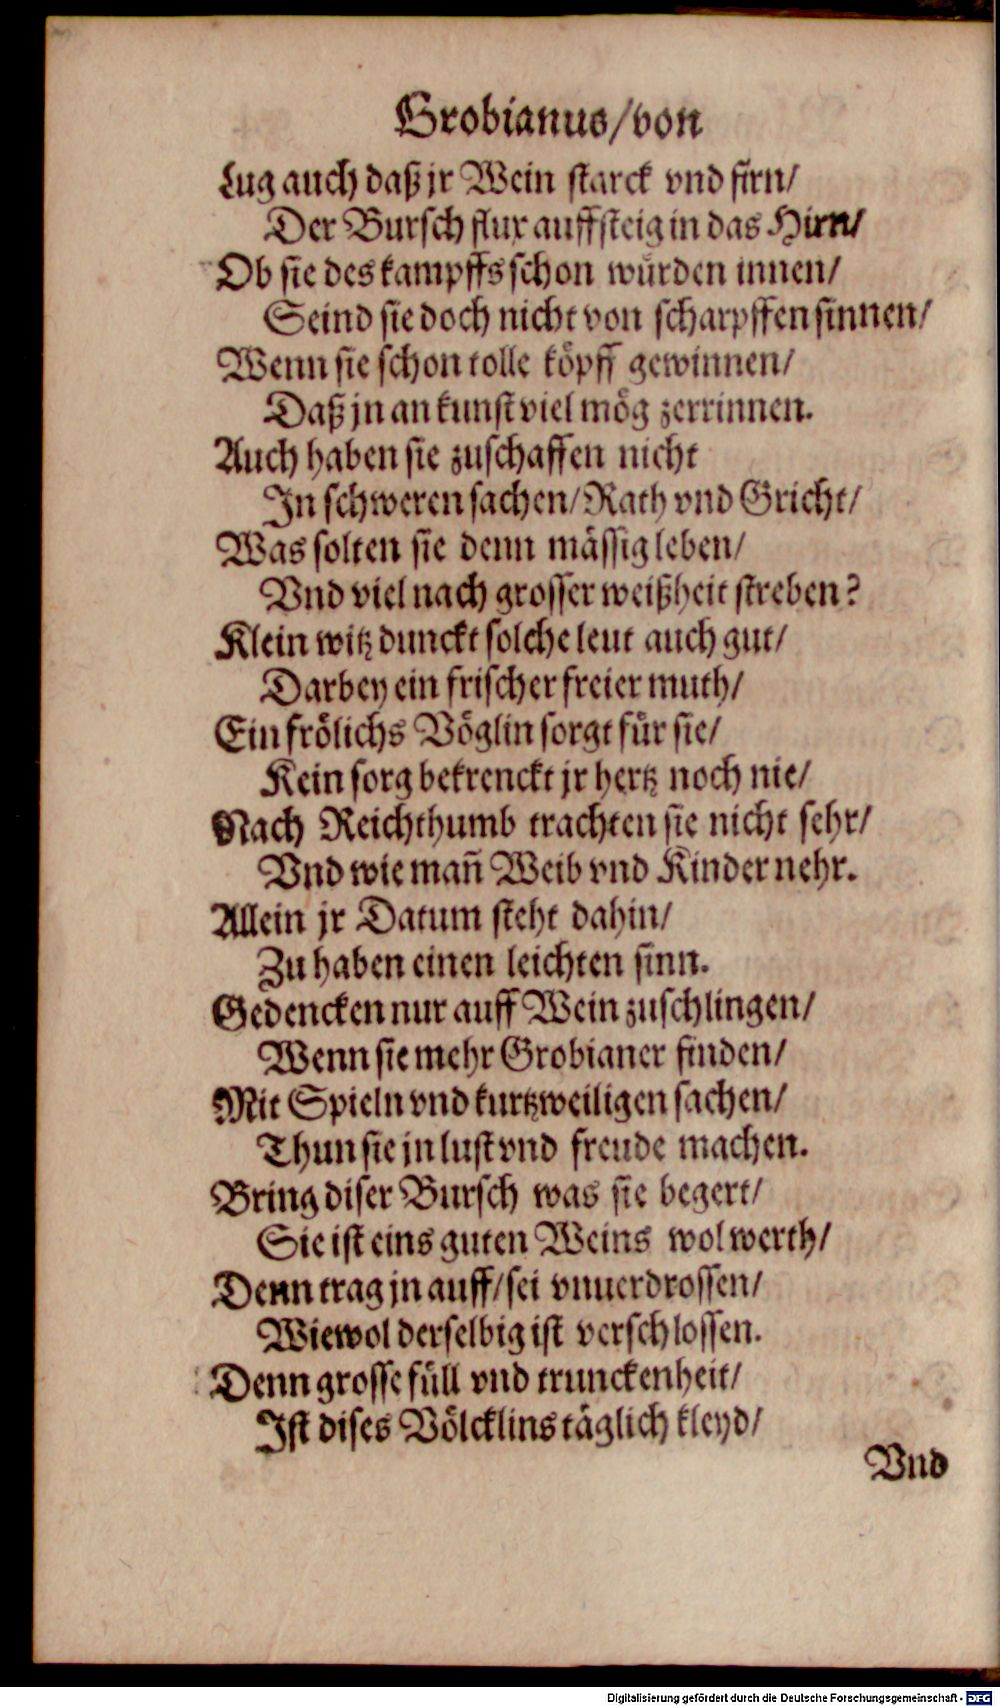 Grobianus/von
Lug auch daß jr Wein starck vnd firn/
Der Bursch flux auffsteig in das Hirn/
Ob sie des kampffs schon würden innen/
Seind sie doch nicht von scharpffen sinnen/
Wenn sie schon tolle köpff gewinnen/
Daß jn an kunst viel mög zerrinnen.
Auch haben sie zuschaffen nicht
In schweren sachen/Rath vnd Gricht/
Was solten sie denn mässig leben/
Vnd viel nach grosser weißheit streben?
Klein witz dunckt solche leut auch gut/
Darbey ein frischer freier muth/
Ein frölichs Vöglin sorgt für sie/
Kein sorg bekrenckt jr hertz noch nie/
Nach Reichthumb trachten sie nicht sehr/
Vnd wie mañ Weib vnd Kinder nehr.
Allein jr Datum steht dahin/
Zu haben einen leichten sinn.
Gedencken nur auff Wein zuschlingen/
Wenn sie mehr Grobianer finden/
Mit Spieln vnd kurtzweiligen sachen/
Thun sie jn lust vnd freude machen.
Bring diser Bursch was sie begert/
Sie ist eins guten Weins wol werth/
Denn trag jn auff/sei vnuerdrossen/
Wiewol derselbig ist verschlossen.
Denn grosse füll vnd trunckenheit/
Ist dises Völcklins täglich kleyd/
Vnd
Digitalisierung gefördert durch die Deutsche Forschungsgemeinschaft - DFG